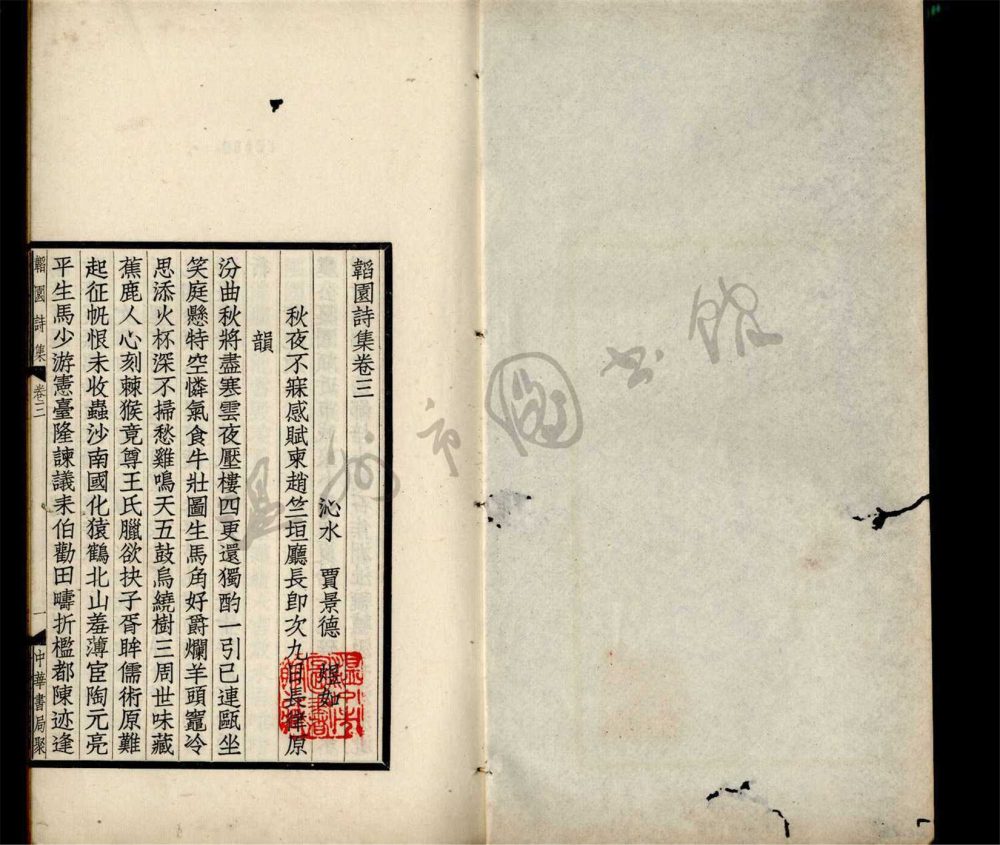 韜園詩集卷三
沁水 賈景德 煜如
秋夜不寐感賦柬趙竺垣廳長即次九日長律原
韻
汾曲秋將盡寒雲夜壓樓四更還獨酌一引已連甌坐
笑庭懸特空憐氣食牛壯圖生馬角好爵爛羊頭竈冷
思添火杯深不掃愁雞鳴天五鼓烏繞樹三周世味藏
蕉鹿人心刻棘猴竟尊王氏臘欲抉子胥眸儒術原難
起征帆恨未收蟲沙南國化猿鶴北山羞薄宦陶元亮
平生馬少游憲臺隆諫議耒伯勸田疇折檻都陳迹逢
韜園詩集 卷三 一 中華書局聚
溫州市圖書館